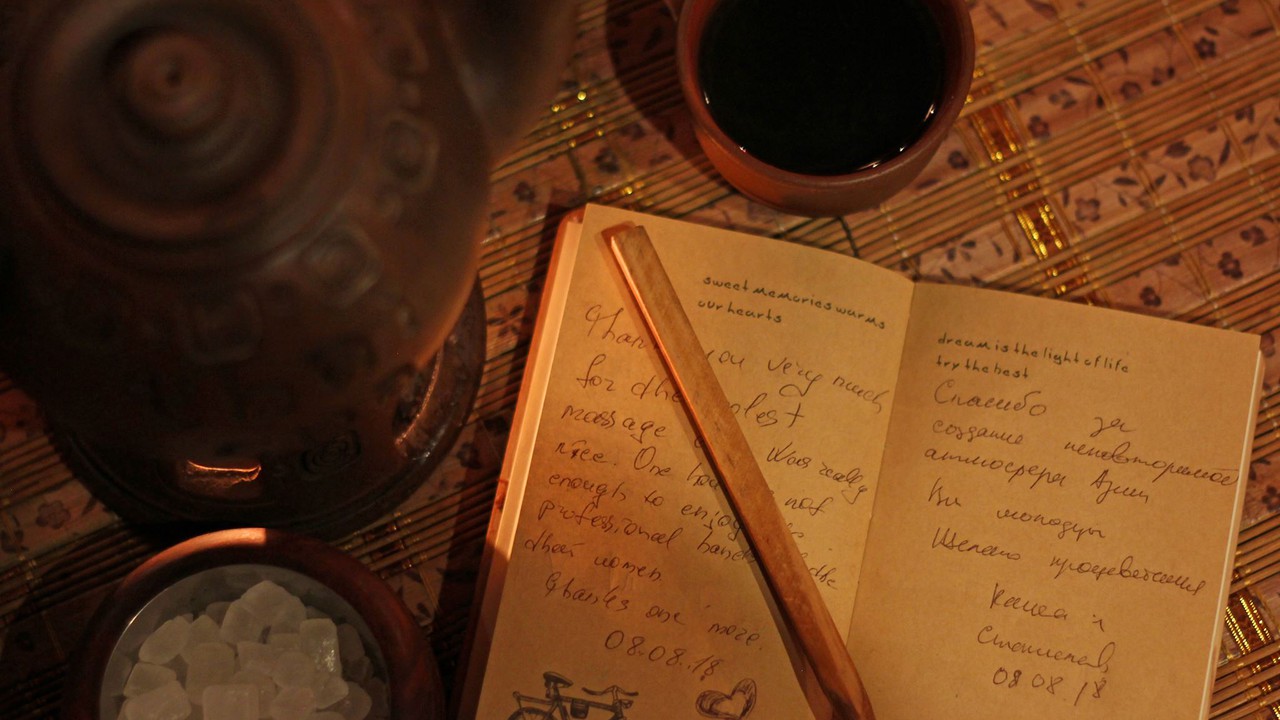 sweet memories warms
our hearts
you very much
for dhe
massage Was really
nice. One not
enough to enjoy
professional hands dhe
dhai women
Thanks one more.
08.08.18
dream is the light of life
try the best
Спасибо за
создание неповторимой
атмосферы Азии
Вы молодцы
Желаю процветания
Станислав
08 08 18